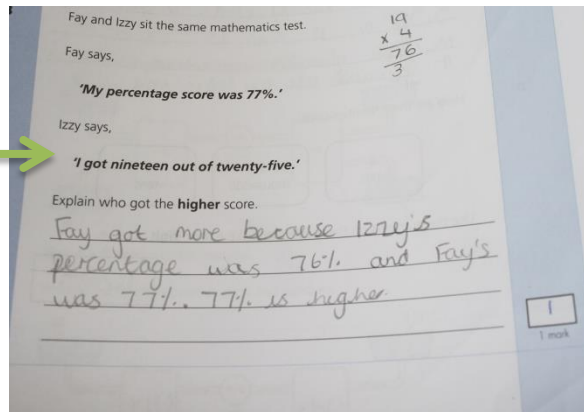 Fay and Izzy sit the same mathematics test.
19
x 4
76
3
Fay says,
'My percentage score was 77%.'
Izzy says,
'I got nineteen out of twenty-five.'
Explain who got the higher score.
Fay got more because Izzy's
percentage was 76%. and Fay's
was 77%. 77% is higher.
1
1 mark